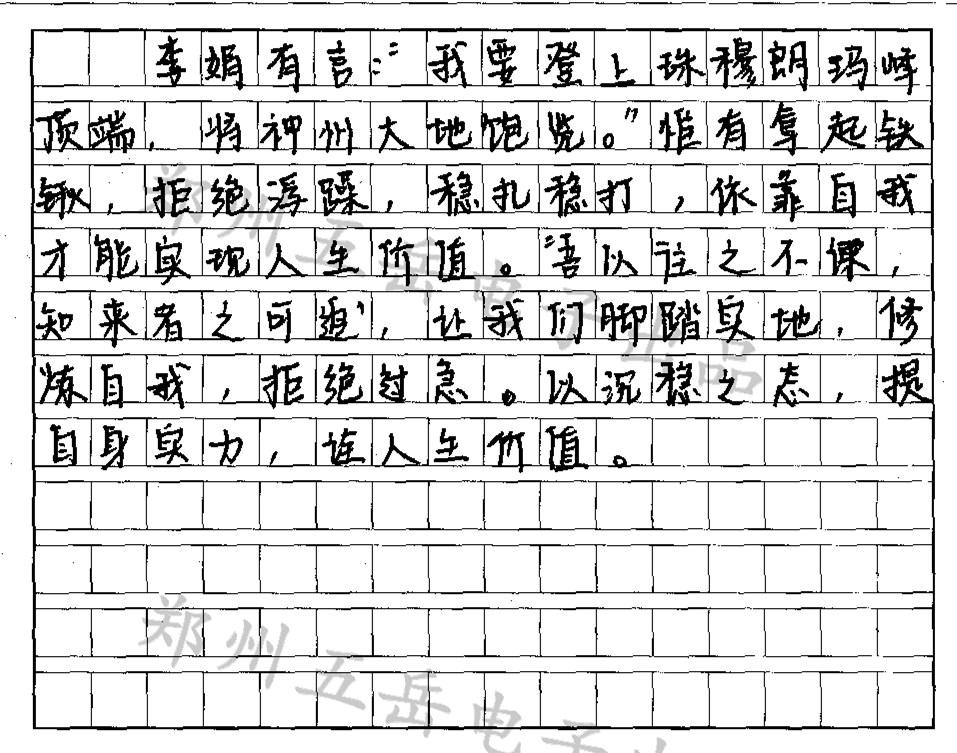 李娟有言:“我要登上珠穆朗玛峰
顶端,将神州大地饱览。”惟有拿起铁
锹,拒绝浮躁,稳扎稳打,依靠自我
才能实现人生价值。“悟以往之不谏,
知来者之可追”,让我们脚踏实地,修
炼自我,拒绝过急。以沉稳之态,提
自身实力,造人生价值。
郑州五岳电子
郑州五岳电子